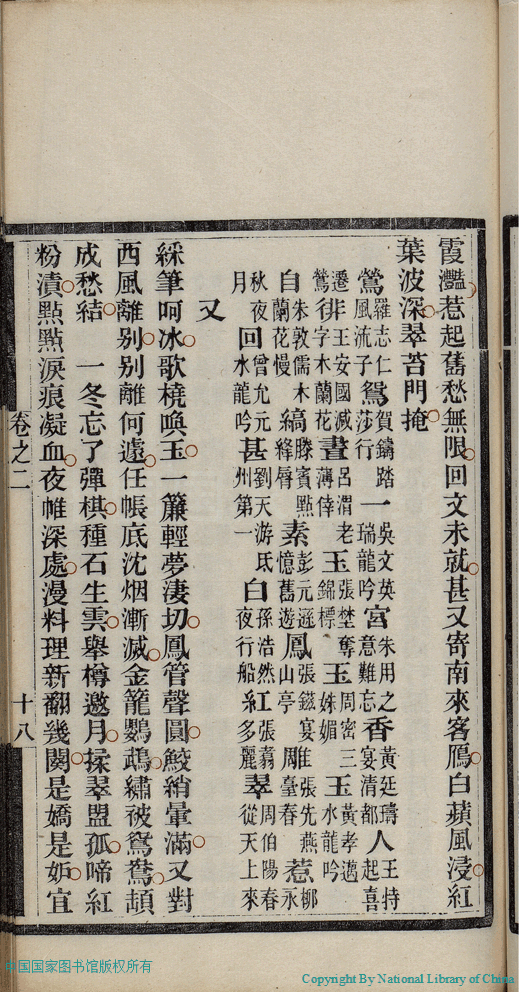 霞灩惹起舊愁無限回文未就甚又寄南來客鴈白蘋風浸紅
葉波深翠苔門掩
鶯羅志仁風流子鴛賀鑄踏莎行一吳文英瑞龍吟宮朱用之意難忘香黃廷璹宴清都人王特起喜
遷鶯徘王安國減字木蘭花晝呂渭老薄倖玉張埜奪錦標玉周密三姝媚玉黃孝邁水龍吟
白朱敦儒木蘭花慢縞滕賓點絳脣素彭元遜憶舊遊鳳張鎡宴山亭雕張先燕臺春惹柳永
秋夜月回曾允元水龍吟甚劉天游氐州第一白孫浩然夜行船紅張翥多麗翠周伯陽春從天上來
又
綵筆呵冰歌橈喚玉一簾輕夢淒切鳳管聲圓鮫綃暈滿又對
西風離别别離何遽任帳底沈烟漸滅金籠鸚鵡繡被鴛鴦頡
成愁結　一冬忘了彈棋種石生雲舉樽邀月揉翠盟孤啼紅
粉漬點點淚痕凝血夜帷深處漫料理新翻幾闋是嬌是妒宜
卷之二
十八
中国国家图书馆版权所有
Copyright By National Library of China